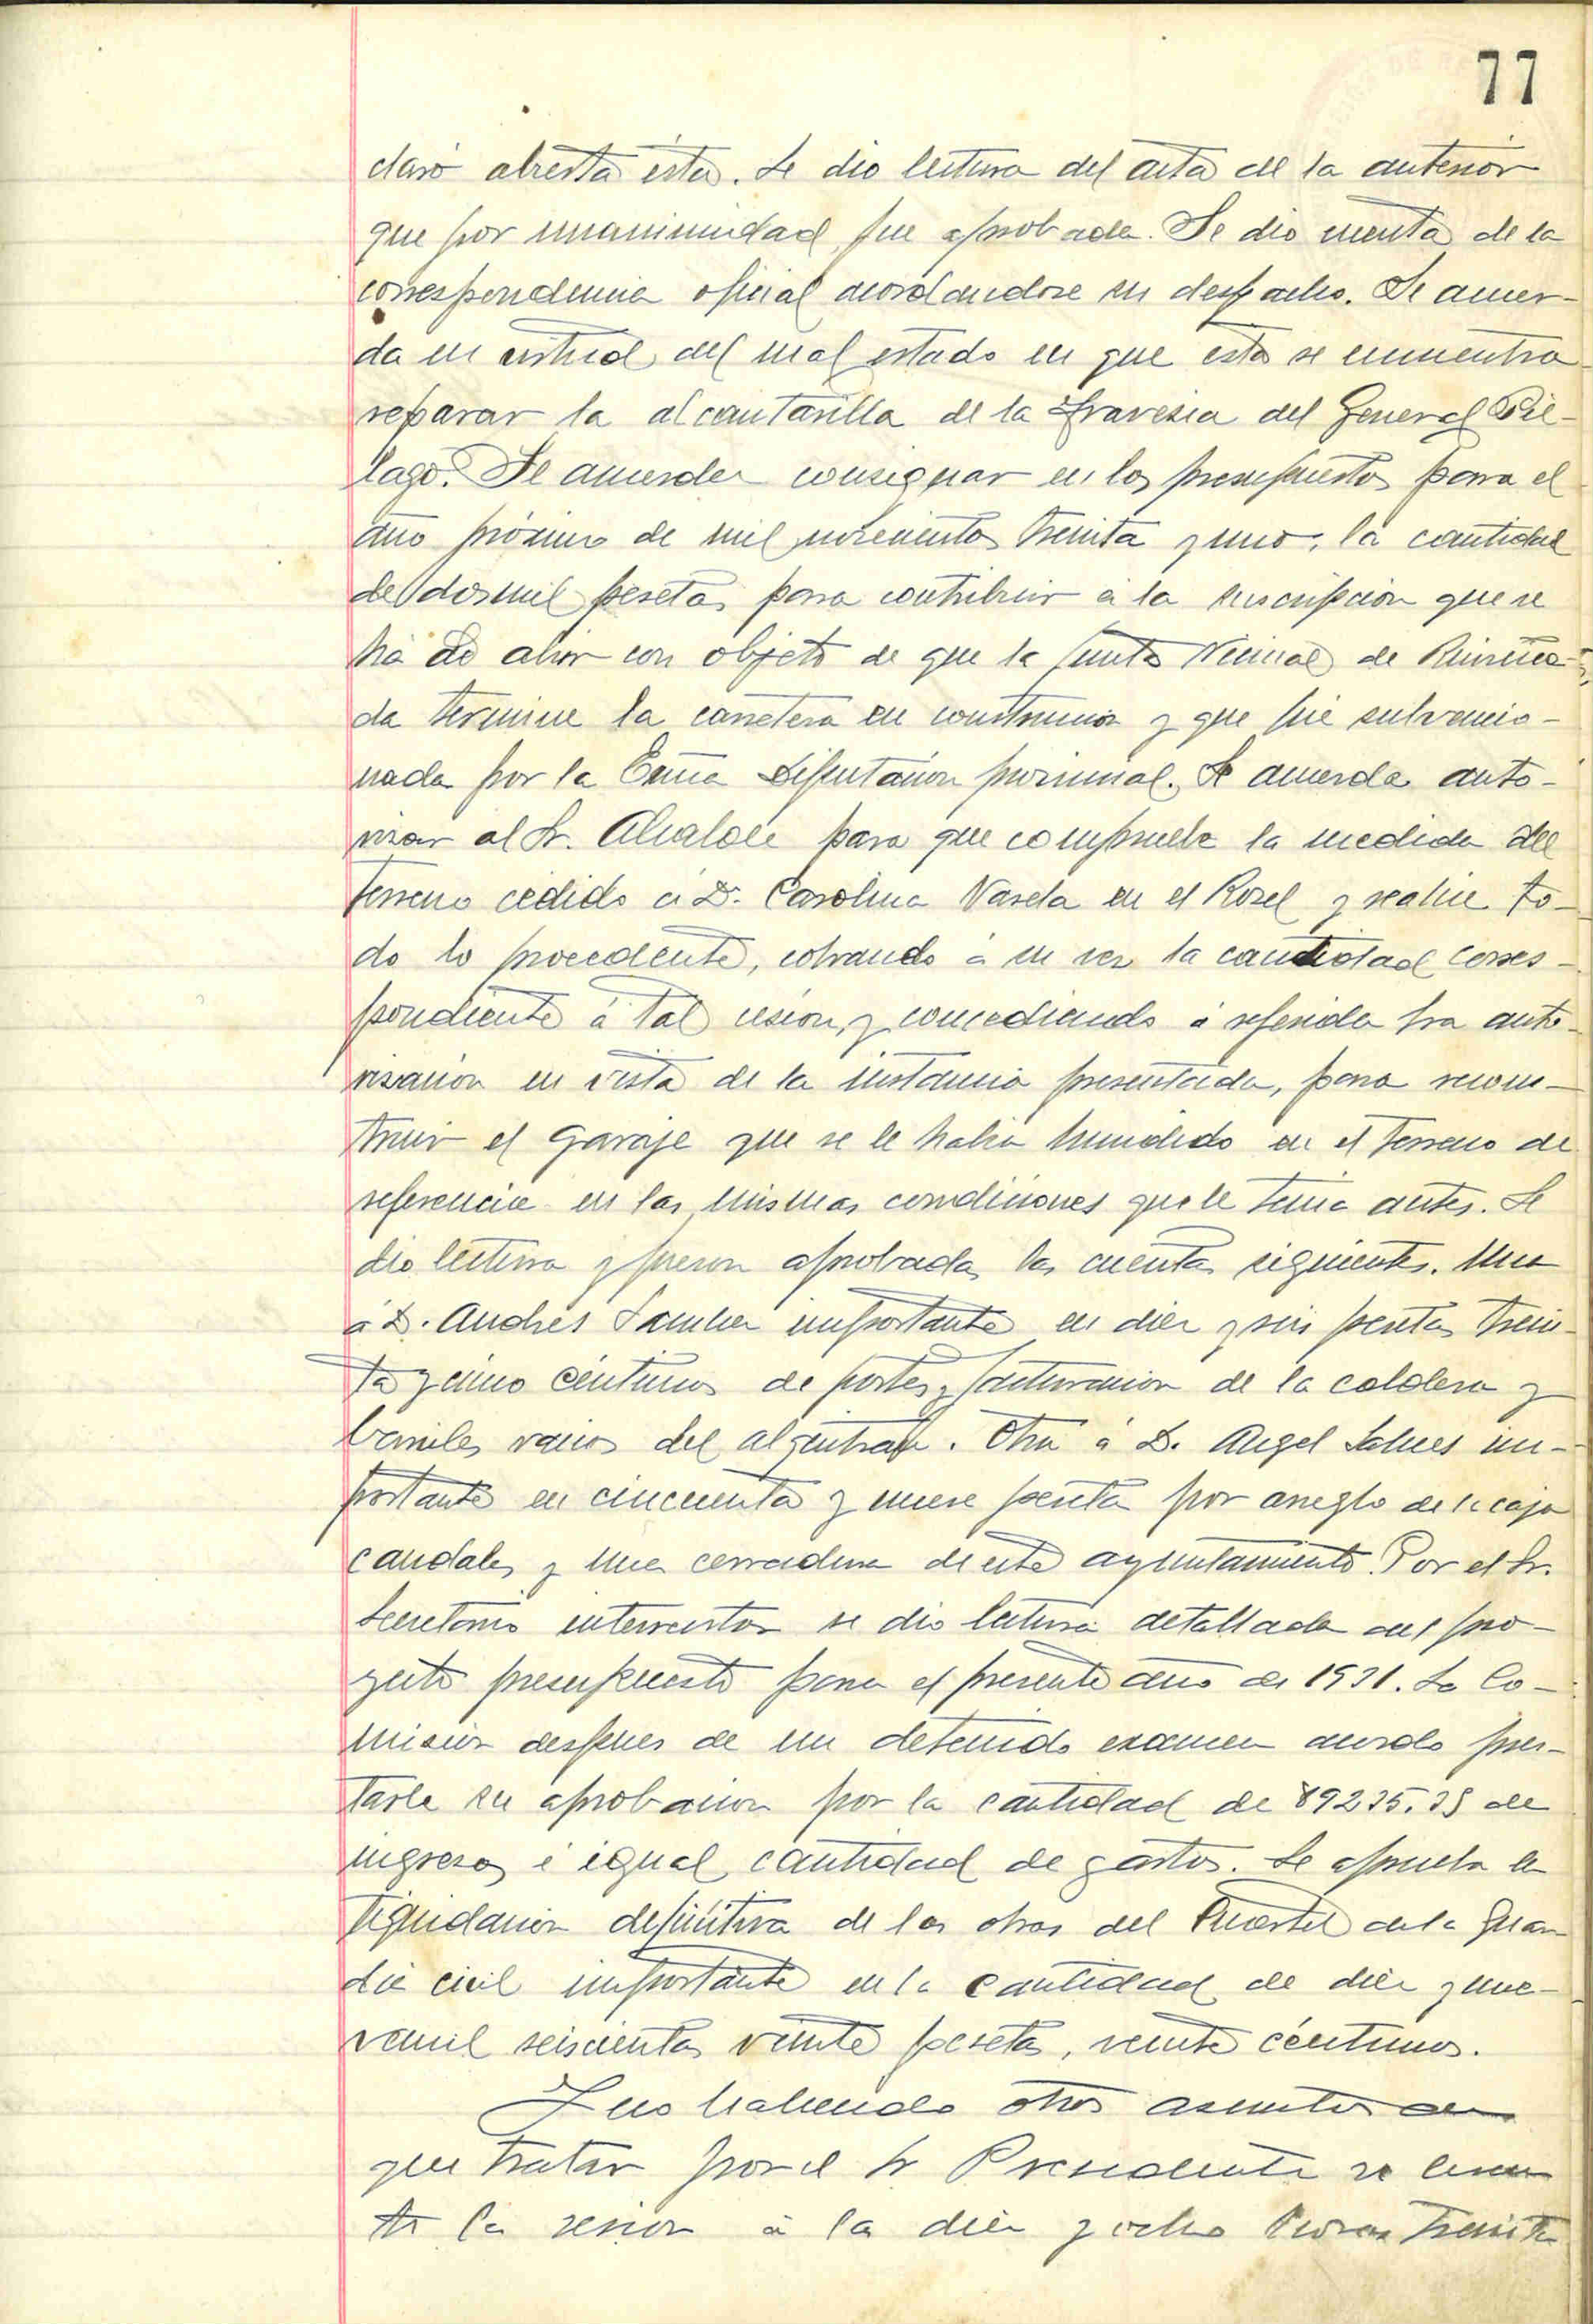 77
claró abierta ésta. Se dio lectura del acta de la anterior
que por unanimidad fue aprobada. Se dio cuenta de la
correspondencia oficial acordandose su despacho. Se acuer-
da en virtud del mal estado en que esta se encuentra
reparar la alcantarilla de la travesia del General Pie-
lago. Se acuerda consignar en los presupuestos para el
año próximo de mil novecientos treinta y uno, la cantidad
de dos mil pesetas para contribuir a la suscripcion que se
ha de abrir con objeto de que la Junta Vecinal de
da termine la carretera en construccion y que fue subvencio-
nada por la Excma Diputacion provincial. Se acuerda auto-
rizar al Sr. Alcalde para que compruebe la medida del
terreno cedido a Dª. Carolina Varela en el Rosel y realice to-
do lo procedente, cobrando a su vez la cantidad corres-
pondiente á tal cesion, y concediendo á referida Sra auto-
rizacion en vista de la instancia presentada, para recons-
truir el garaje que se le habia hundido en el terreno de
referencia en las mismas condiciones que le tenia antes. Se
dio lectura y fueron aprobadas las cuentas siguientes. Una
a D. Andrés importante en diez y seis pesetas trein-
ta y cinco centimos de portes y facturacion de la caldera y
barriles vacios del alquitran. Otra á D. Angel im-
portante en cincuenta y nueve pesetas por arreglo de la caja
caudales y una cerradura de este ayuntamiento. Por el Sr.
Secretario interventor se dio lectura detallada del pro-
yecto presupuesto para el presente año de 1931. La Co-
mision despues de un detenido examen acordo pres-
tarle su aprobacion por la cantidad de de
ingresos é igual cantidad de gastos. Se aprueba la
liquidacion definitiva de las obras del Cuartel de la Guar
dia civil importante en la cantidad de diez y nue-
ve mil seiscientas veinte pesetas, veinte céntimos.
Y no habiendo otros asuntos de
que tratar por el Sr Presidente se levan
tó la sesion á la diez y ocho horas treinta